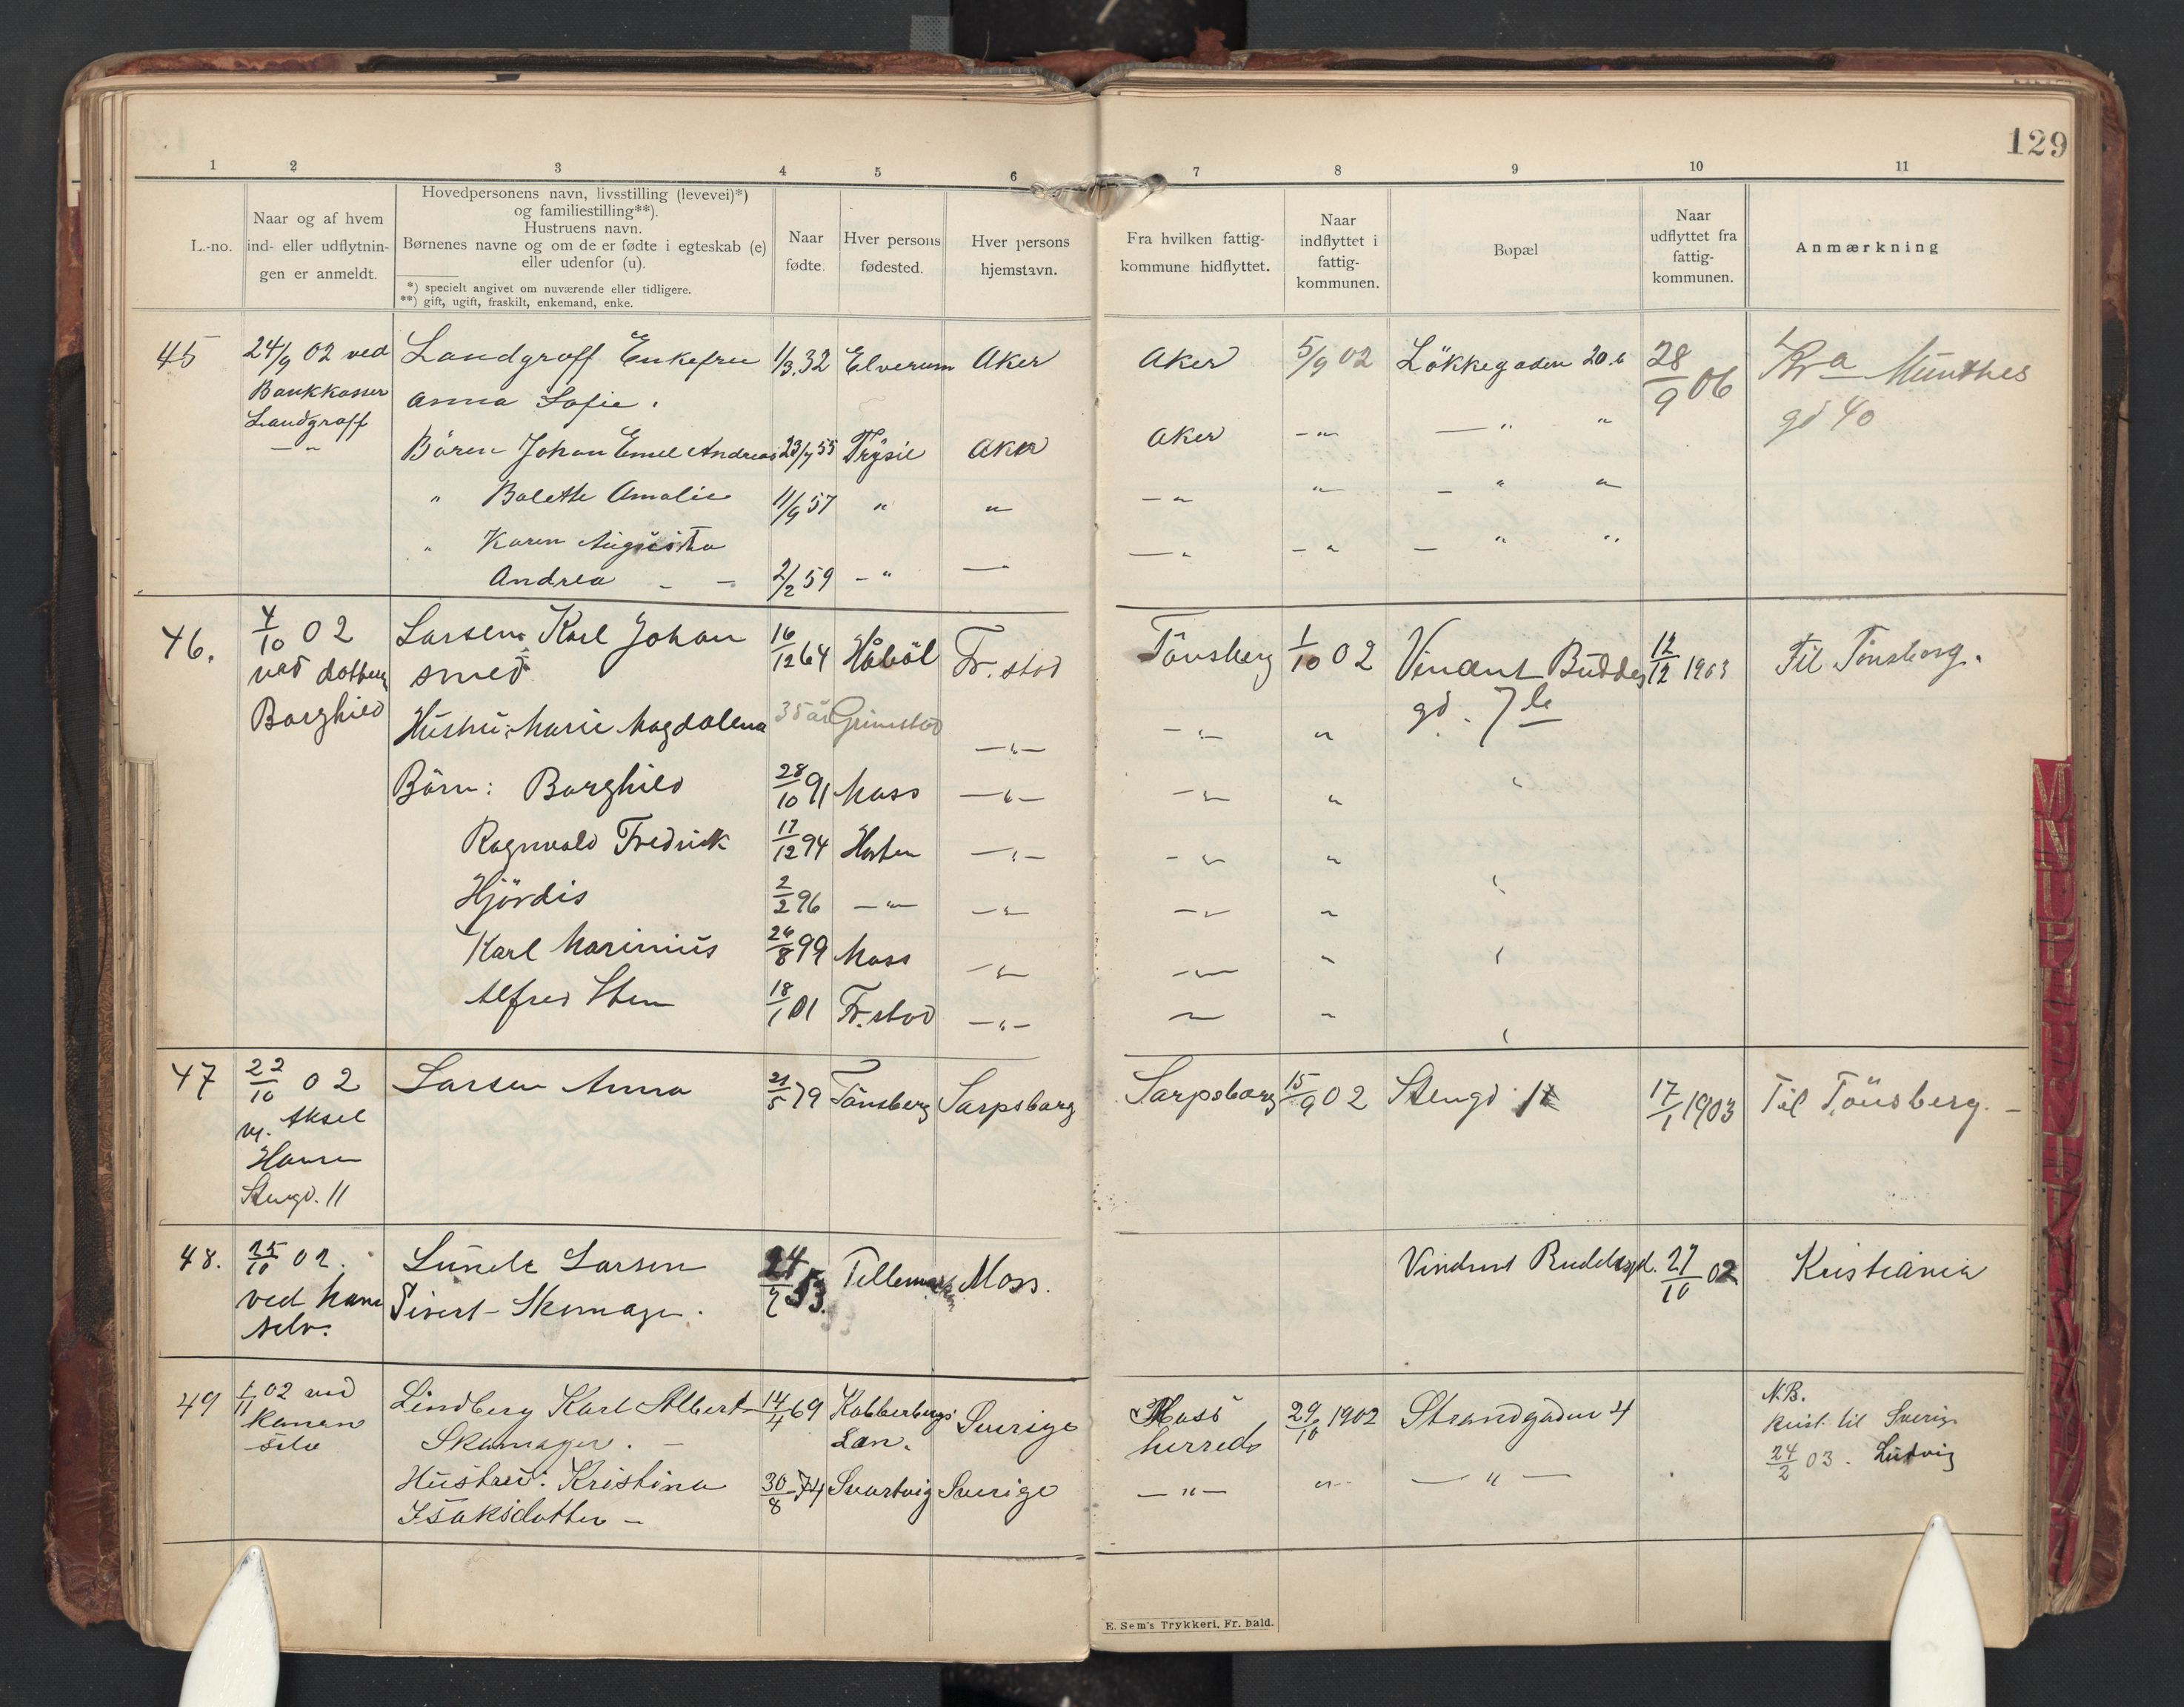 129
1 2 3 4 5 6 7 8 9 10 11
L.-no.
Naar og af hvem
ind- eller udflytnin-
gen er anmeldt.
Hovedpersonens navn, livsstilling (levevei)*)
og familiestilling**).
Hustruens navn.
Børnenes navne og om de er fødte i egteskab (e)
eller udenfor (u).
*) specielt angivet om nuværende eller tidligere.
**) gift, ugift, fraskilt, enkemand, enke.
Naar
fødte.
Hver persons
fødested.
Hver persons
hjemstavn.
Fra hvilken fattig-
kommune hidflyttet.
Naar
indflyttet i
fattig-
kommunen.
Bopæl
Naar
udflyttet fra
fattig-
kommunen.
Anmærkning
45 24/9 02 ved Landgraff Enkefru 1/3.32 Elverum Aker Aker 5/9 02 Lökkegaden 20.b 28/9 06 Kra Munthes
Bankkasser Anna Sofie. gd 40
Landgraff
—"— Bören Johan Emel Andreas 23/7 55 Trysil Aker Aker —"— —"— "
" Bolette Amalie 11/9 57 " " —"— " —"— "
" Karen Augusta —"— —"— —"— "
Andrea — — 2/2 59 —" —"
46. 4/10 02 Larsen Karl Johan 16/12 64 Håböl Fr.stad Tönsberg 1/10 02 Vincent Buddes 12/12 1903 Til Tönsberg.
ved datteren smed gd. 7 b
Borghild Hustru: Marie Magdalena 35 år Grimstad —"— —"— "
Börn: Borghild 28/10 91 Moss —"— —"— " "
Ragnvald Fredrick 17/12 94 Horten —"— —"— "
Hjördis 2/2 96 —"— —"— —"— " "
Karl Marinius 24/8 99 Moss —"— —"— " "
Alfred Sten 18/1 01 Fr.stad —"— — " "
47 22/10 02 Larsen Anna 21/5 79 Tönsberg Sarpsborg Sarpsborg 15/9 02 Stengd 11 17/1 1903 Til Tönsberg. —
v. Aksel
Hansen
Stengd. 11
48. 25/10 02. Lunde Larsen 24/2 53. Tellemarken Moss. Vincent Buddesgd. 27/10 02 Kristiania
ved ham Sivert - Skomager.
selv.
49 1/11 02 ved Lindberg Karl Albert 14/4 69 Kobberbergs Sverige Moss 29/10 1902 Strandgaden 4 N.B.
manden Skomager. — Län. herreds reist til Sverige
selv 24/2 03. Ludvig
Hustru: Kristina 30/8 74 Svartvig Sverige —"— " —"—
Isaksdotter —
E. Sem's Trykkeri, Fr. hald.